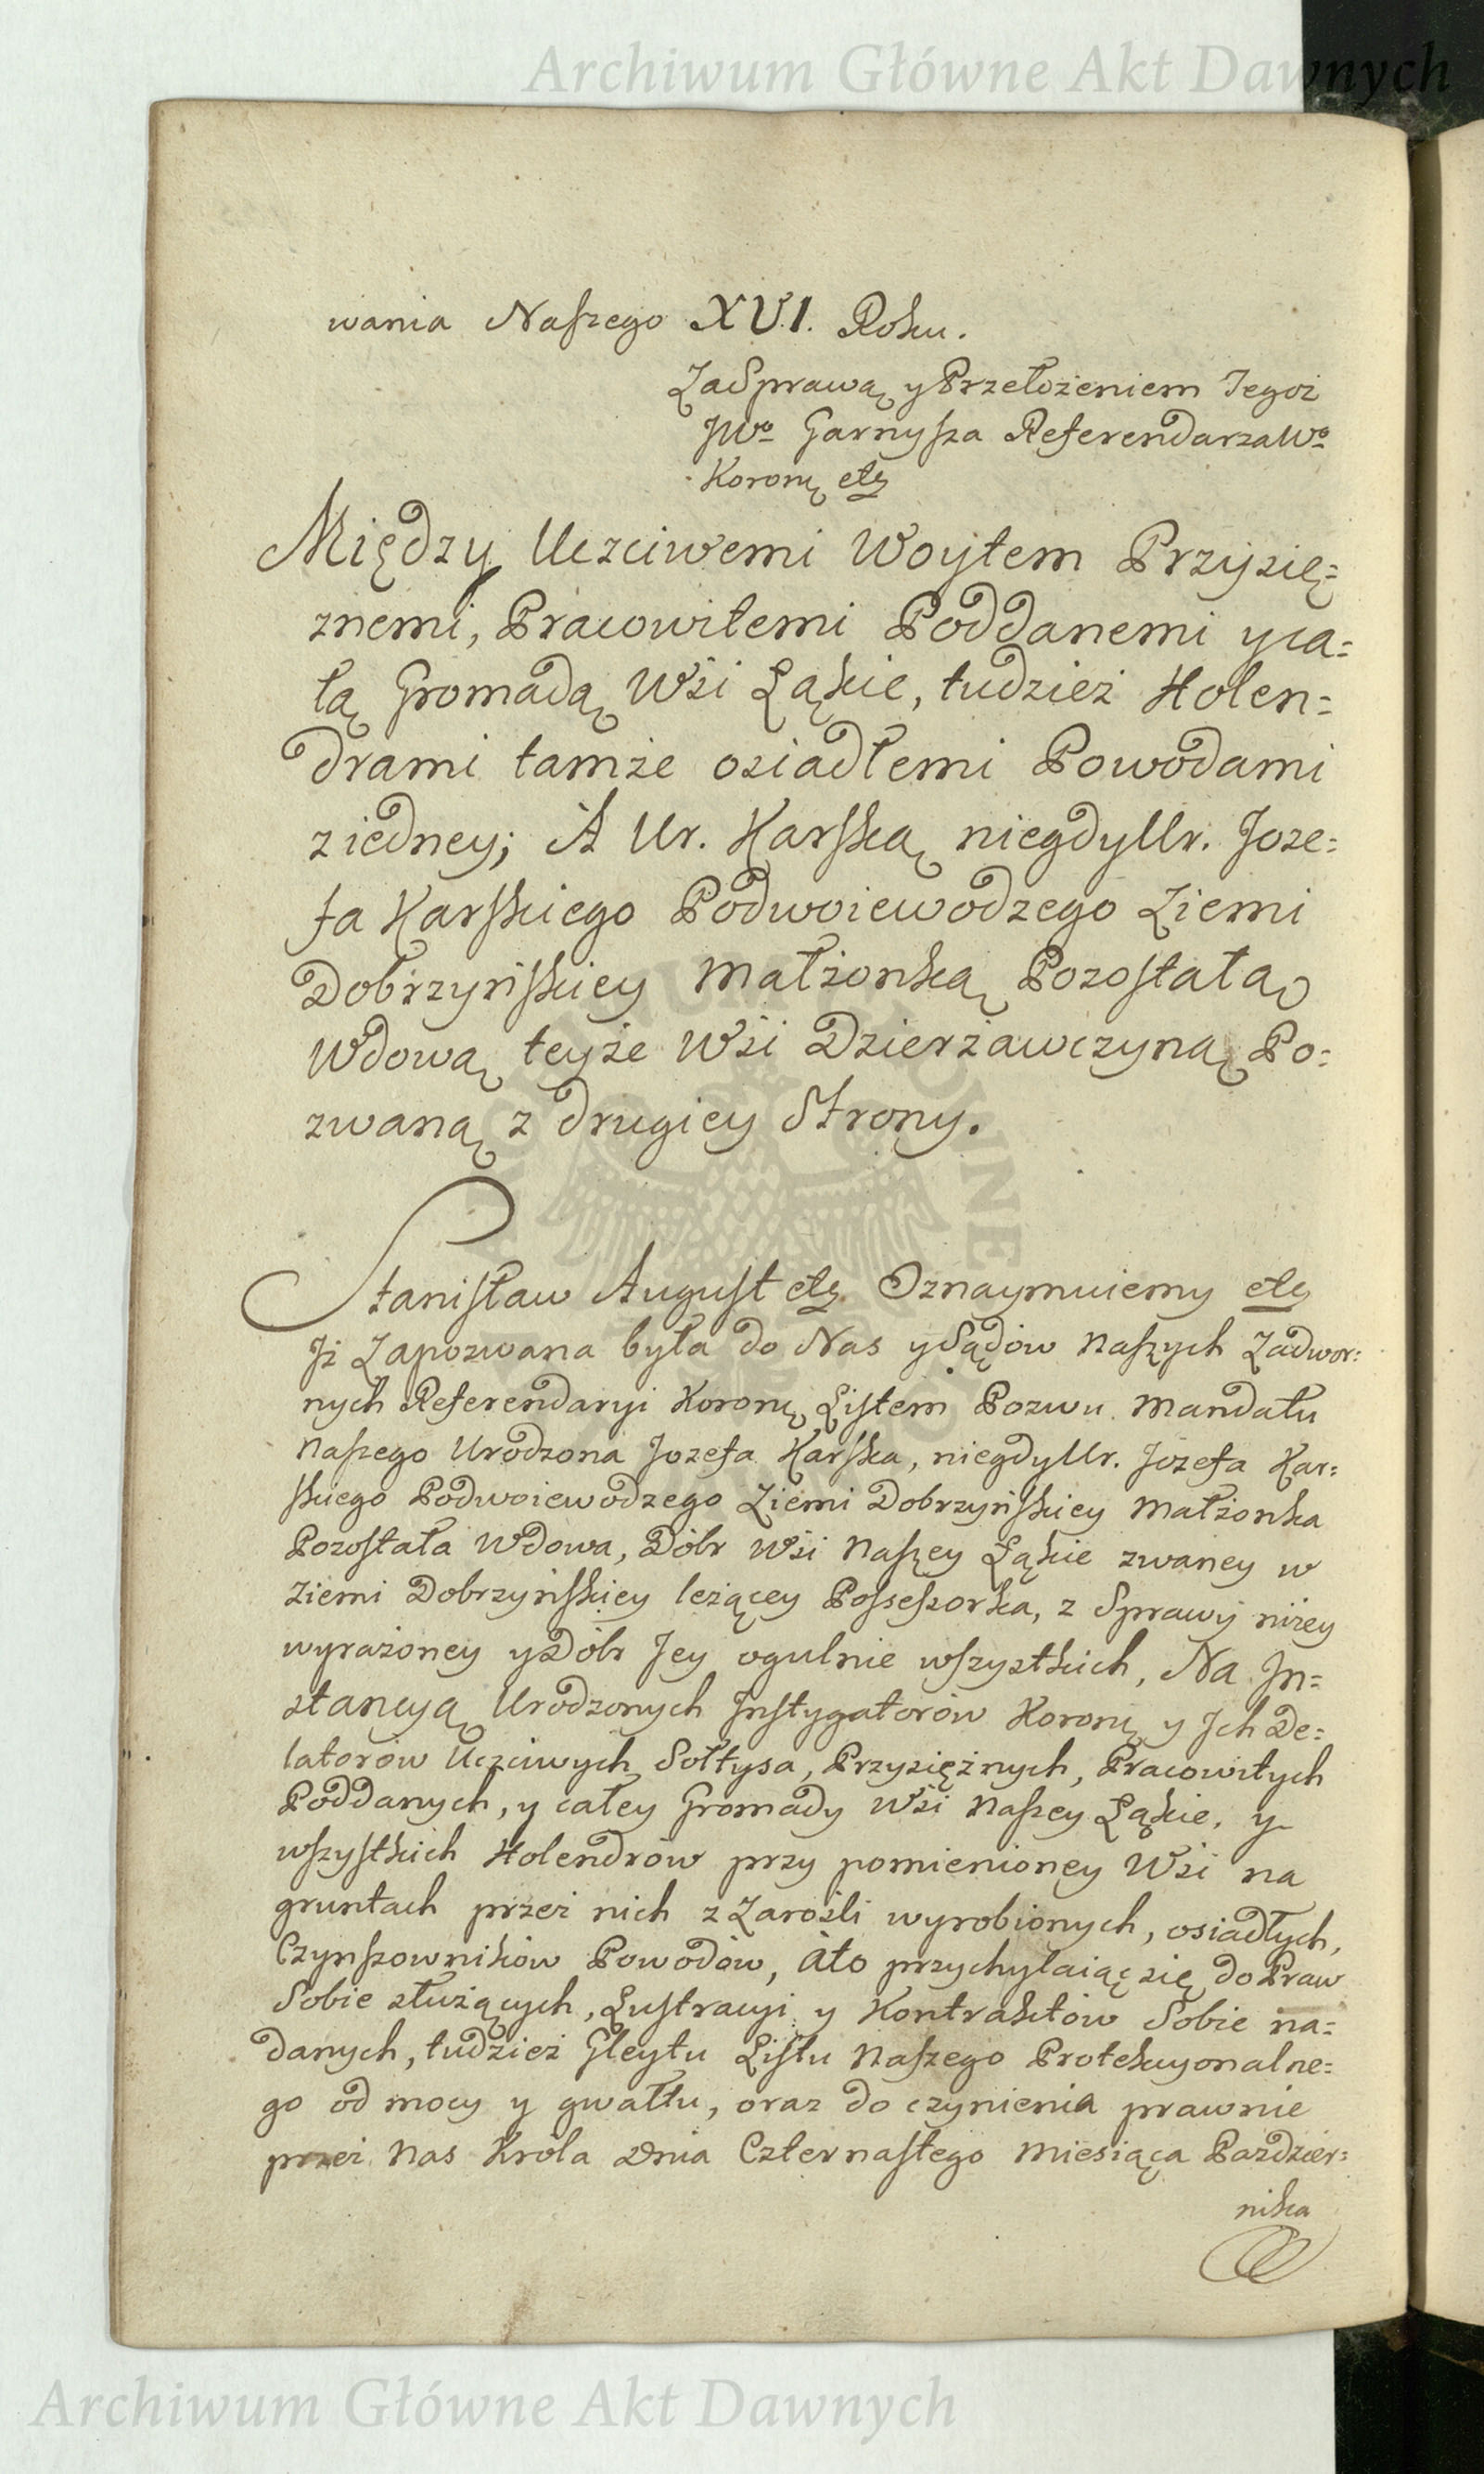 Archiwum Główne Akt Dawnych
wania Naszego XVI. Roku.
Za Sprawą y Przełożeniem Tegoż
JWo Garnysza Referendarza Wo
Koronę etc
Między Uczciwemi Woytem Przysię=
znemi, Pracowitemi Poddanemi y ca=
łą Gromadą Wśi Łąkie, tudzież Holen=
drami tamże osiadłemi Powodami
z iedney; A Ur. Karską niegdy Ur. Joze=
fa Karskiego Podwoiewodzego Ziemi
Dobrzyńskiey Małżonką Pozostałą
Wdową teyże Wśi Dzierżawczyną Po=
zwaną z drugiey Strony.
Stanisław August etc. Oznaymuiemy etc
Jż Zapozwana była do Nas y Sądów Naszych Zadwor=
nych Referendaryi Koronę Listem Pozwu Mandatu
Naszego Urodzona Jozefa Karska, niegdy Ur. Jozefa Kar=
skiego Podwoiewodzego Ziemi Dobrzyńskiey Małżonka
Pozostała Wdowa, Dóbr Wśi Naszey Łąkie zwaney w
Ziemi Dobrzyńskiey leżącey Possessorka, z Sprawy niżey
wyrażoney y Dóbr Jey ogulnie wszystkich, Na Jn=
stancyą Urodzonych Jnstygatorów Koronę y Jch De=
latorów Uczciwych Sołtysa, Przysiężnych, Pracowitych
Poddanych, y całey Gromady Wśi Naszey Łąkie, y
wszystkich Holendrów przy pomienioney Wśi na
gruntach przez nich z Zarośli wyrobionych, osiadłych,
Czynszowników Powodów, Ato przychylaiąc się do Praw
Sobie służących, Lustracyi y Kontraktów Sobie na=
danych, tudzież Gleytu Listu Naszego Protekcyonalne=
go od mocy y gwałtu, oraz do czynienia prawnie
przez Nas Krola Dnia Czternastego Miesiąca Pazdzier=
nika
Archiwum Główne Akt Dawnych